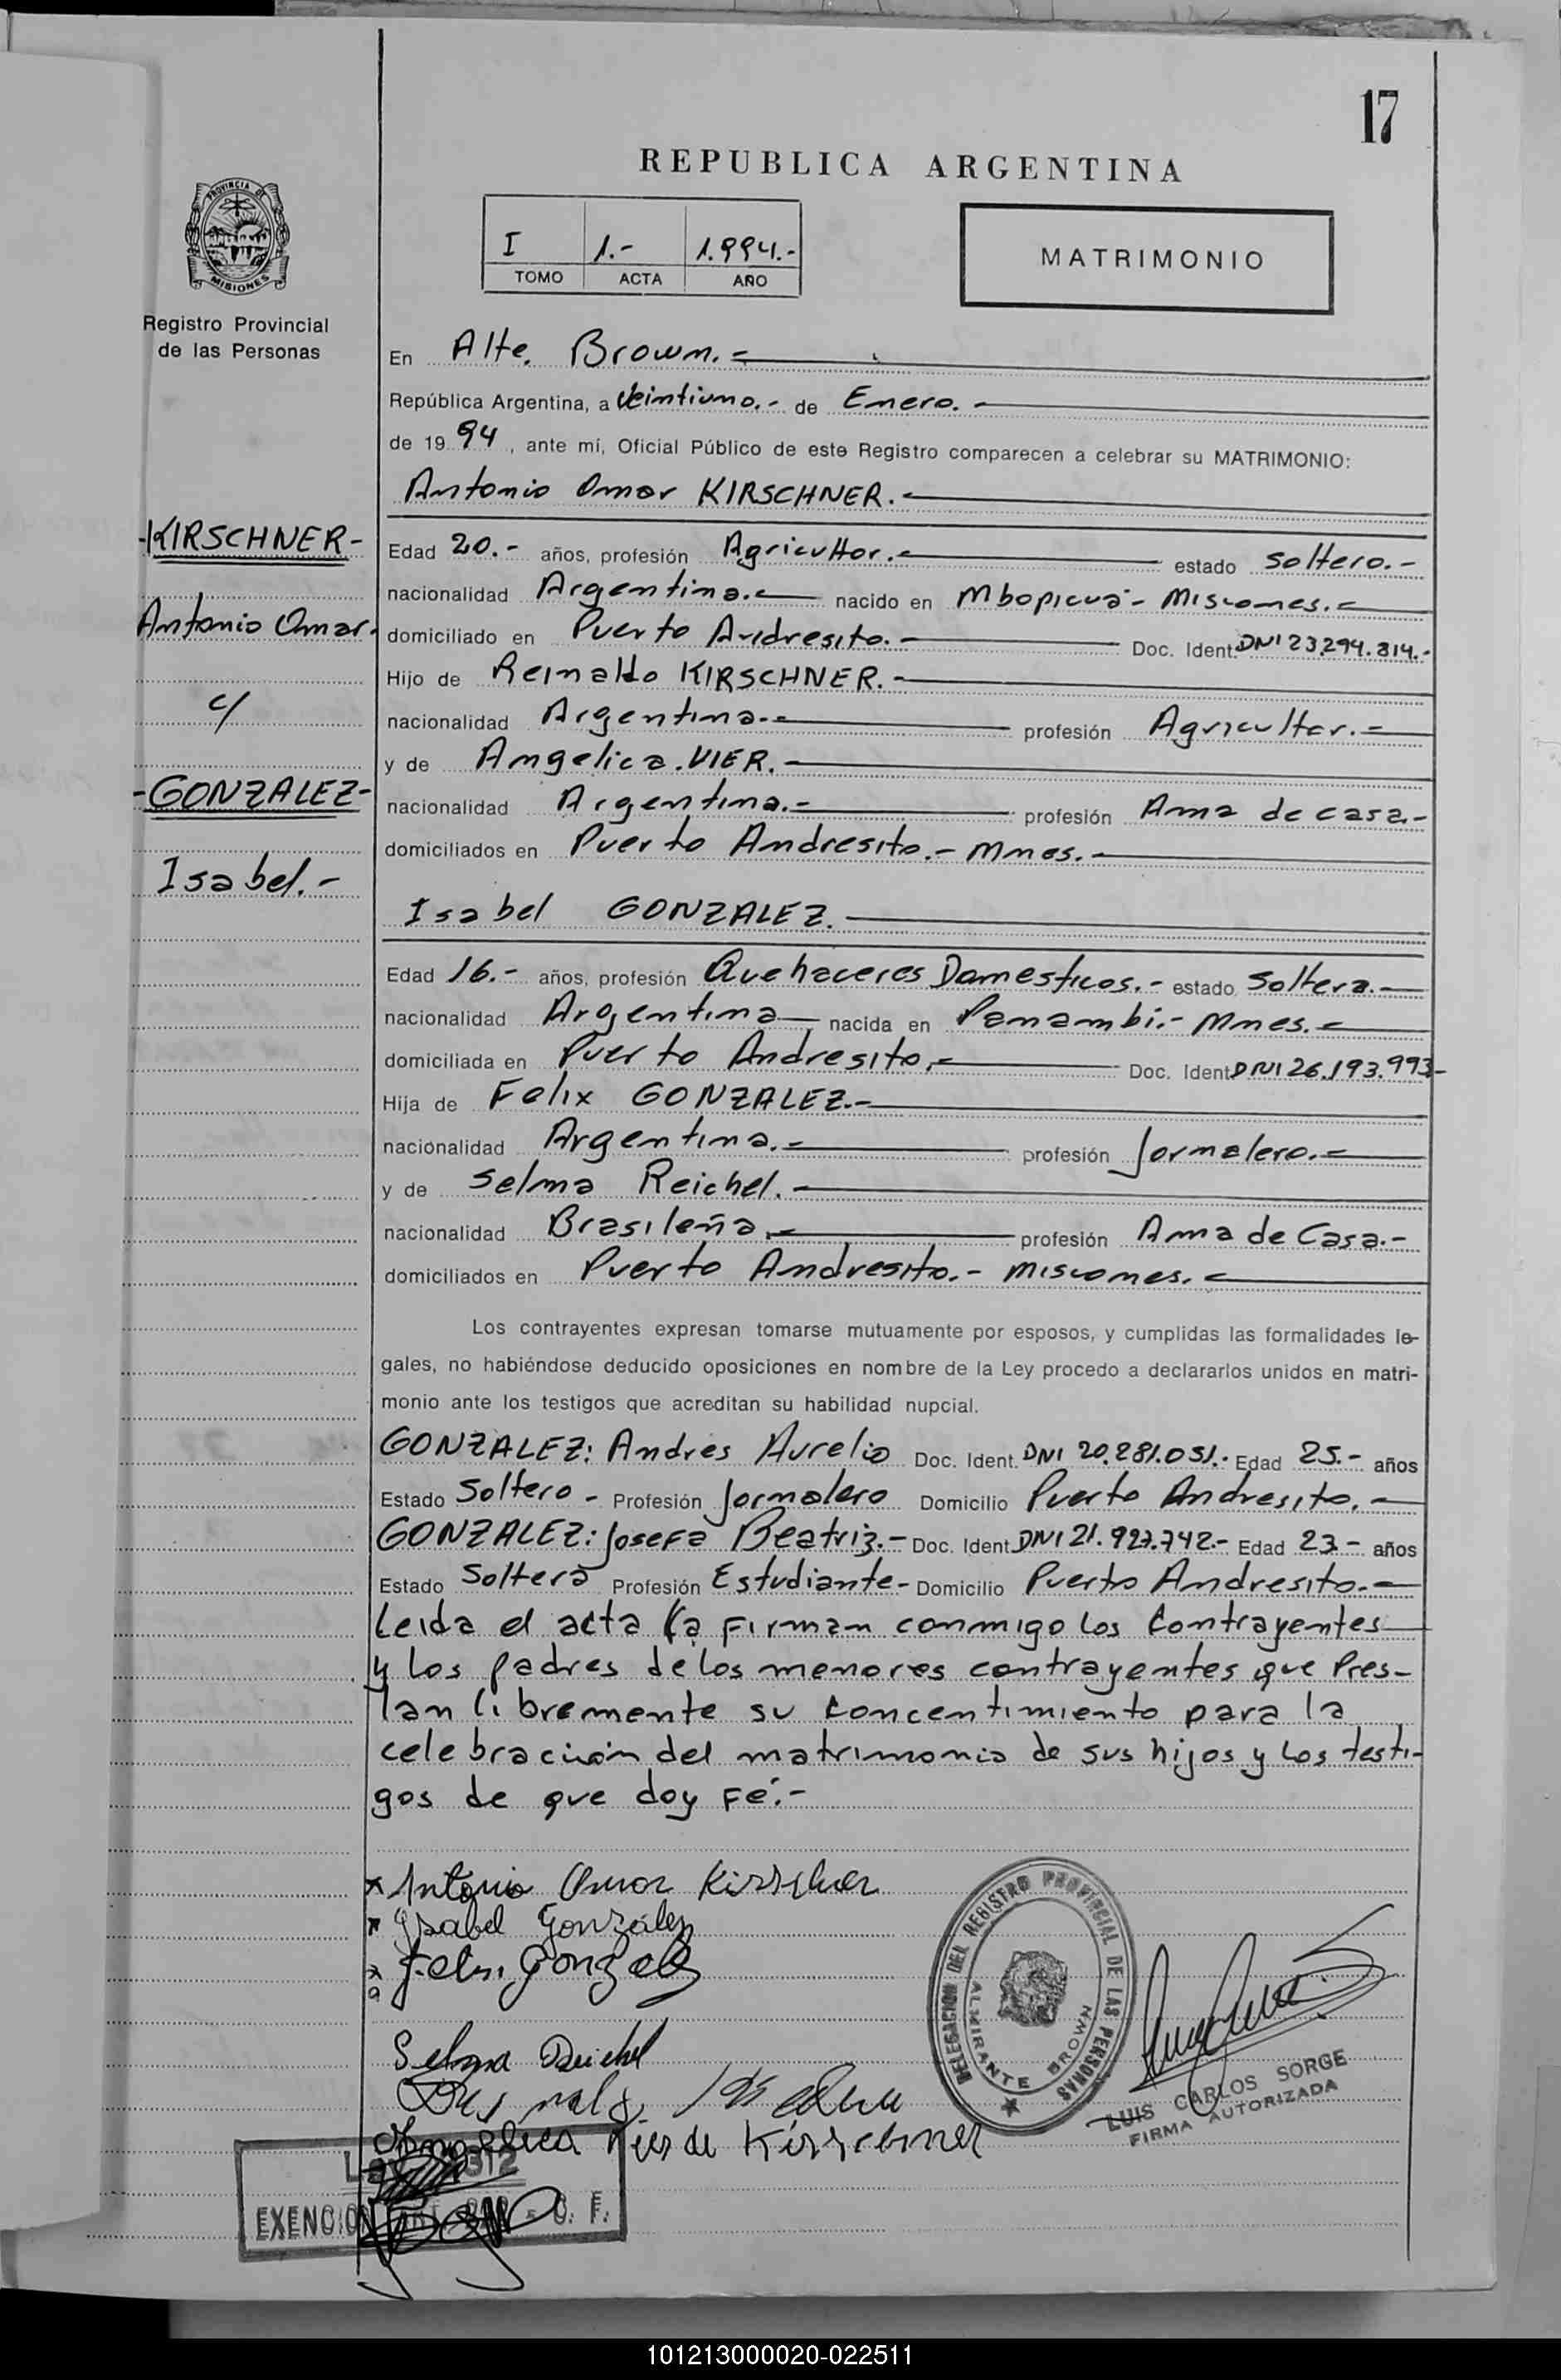 17
REPUBLICA ARGENTINA
I 1.- 1.994.-
TOMO ACTA AÑO
MATRIMONIO
PROVINCIA DE
MISIONES
Registro Provincial
de las Personas
En Alte. Brown.-
República Argentina, a Veintiuno.- de Enero.-
de 1994, ante mí, Oficial Público de este Registro comparecen a celebrar su MATRIMONIO:
Antonio Omar KIRSCHNER.-
-KIRSCHNER-
Antonio Omar.
c/
-GONZALEZ-
Isabel.-
Edad 20.- años, profesión Agricultor.- estado Soltero.-
nacionalidad Argentina.- nacido en Mbopicuá - Misiones.-
domiciliado en Puerto Andresito.- Doc. Ident. DNI 23.294.814.-
Hijo de Reinaldo KIRSCHNER.-
nacionalidad Argentina.- profesión Agricultor.-
y de Angelica. VIER.-
nacionalidad Argentina.- profesión Ama de casa.-
domiciliados en Puerto Andresito.- Mnes.-
Isabel GONZALEZ.
Edad 16.- años, profesión Quehaceres Domesticos.- estado Soltera.-
nacionalidad Argentina nacida en Panambi.- Mnes.-
domiciliada en Puerto Andresito.- Doc. Ident. DNI 26.193.993-
Hija de Felix GONZALEZ.-
nacionalidad Argentina.- profesión Jornalero.-
y de Selma Reichel.-
nacionalidad Brasileña.- profesión Ama de Casa.-
domiciliados en Puerto Andresito.- Misiones.-
Los contrayentes expresan tomarse mutuamente por esposos, y cumplidas las formalidades le-
gales, no habiéndose deducido oposiciones en nombre de la Ley procedo a declararlos unidos en matri-
monio ante los testigos que acreditan su habilidad nupcial.
GONZALEZ: Andres Aurelio Doc. Ident. DNI 20.281.051.- Edad 25.- años
Estado Soltero - Profesión Jornalero Domicilio Puerto Andresito.-
GONZALEZ: Josefa Beatriz.- Doc. Ident. DNI 21.927.742.- Edad 23.- años
Estado Soltera Profesión Estudiante- Domicilio Puerto Andresito.-
Leida el acta la Firman conmigo los Contrayentes
y los padres de los menores contrayentes que Pres-
tan libremente su concentimiento para la
celebración del matrimonio de sus hijos y los testi-
gos de que doy Fé.-
x Antonio Omar Kirschner
x Ysabel González
x Felix Gonzalez
Selma Reichel
Angelica Vier de Kirschner
DELEGACION DEL REGISTRO PROVINCIAL DE LAS PERSONAS
ALMIRANTE BROWN
LUIS CARLOS SORGE
FIRMA AUTORIZADA
EXENCION
101213000020-022511